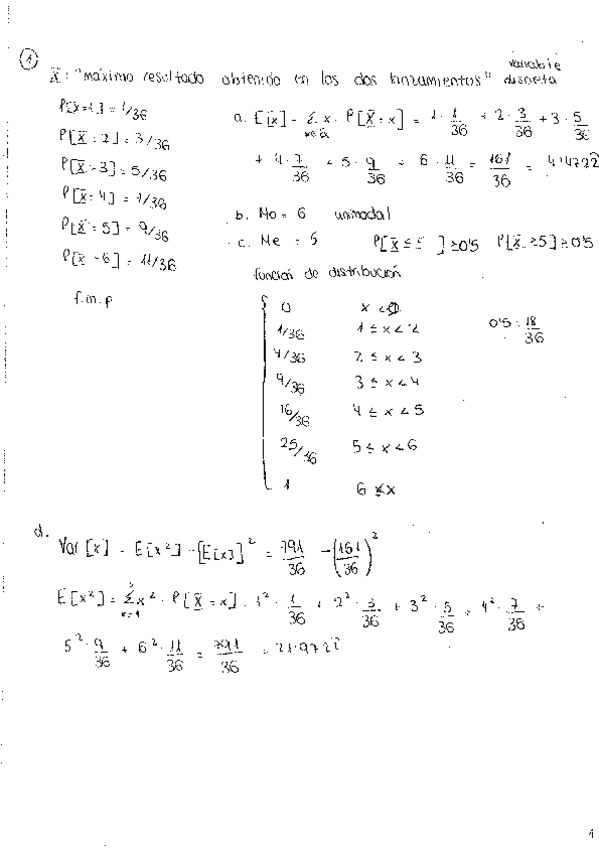 ①
X: "máximo resultado obtenido en los dos lanzamientos" variable discreta
P[X=1] = 1/36
P[X=2] = 3/36
P[X=3] = 5/36
P[X=4] = 7/36
P[X=5] = 9/36
P[X=6] = 11/36
f.m.p
a. E[X] = Σ x · P[X=x] = 1 · 1/36 + 2 · 3/36 + 3 · 5/36
+ 4 · 7/36 + 5 · 9/36 + 6 · 11/36 = 161/36 = 4'4722
b. Mo = 6 unimodal
c. Me = 5 P[X ≤ 5 ] ≥ 0'5 P[X ≥ 5] ≥ 0'5
función de distribución
0 x < 1
1/36 1 ≤ x < 2
4/36 2 ≤ x < 3
9/36 3 ≤ x < 4
16/36 4 ≤ x < 5
25/36 5 ≤ x < 6
1 6 ≤ x
0'5 = 18/36
d.
Var [x] = E[x²] - [E[x]]² = 791/36 - (161/36)²
E[x²] = Σ x² · P[X=x] = 1² · 1/36 + 2² · 3/36 + 3² · 5/36 + 4² · 7/36 +
5² · 9/36 + 6² · 11/36 = 791/36 = 21'972
1